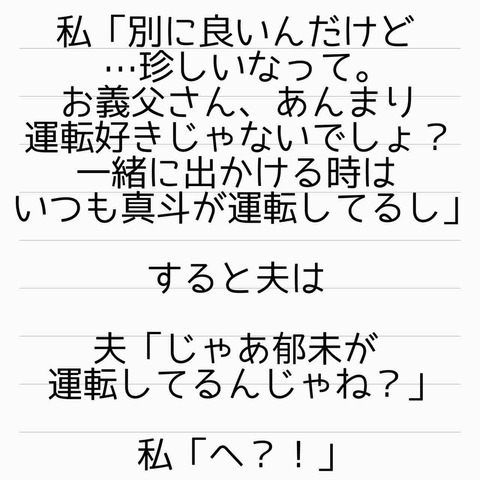 私「別に良いんだけど
…珍しいなって。
お義父さん、あんまり
運転好きじゃないでしょ？
一緒に出かける時は
いつも真斗が運転してるし」
すると夫は
夫「じゃあ郁未が
運転してるんじゃね？」
私「へ？！」